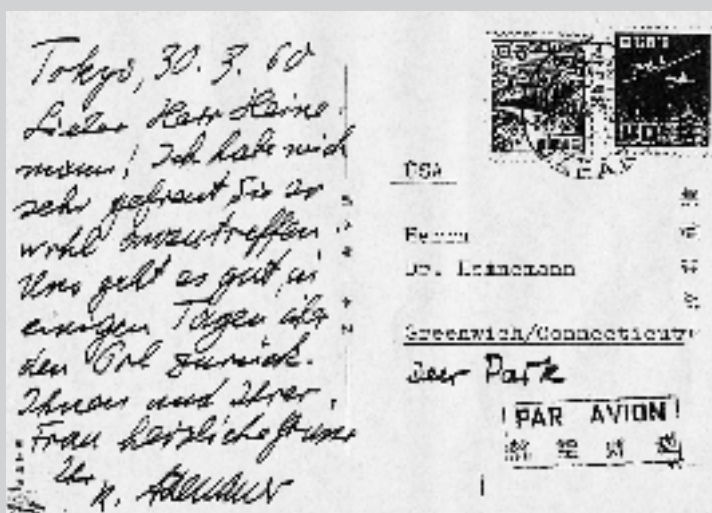 Tokyo, 30. 3. 60
Lieber Herr Heine-
mann! Ich habe mich
sehr gefreut Sie so
wohl anzutreffen.
Uns geht es gut, in
einigen Tagen über
den Pol zurück.
Ihnen und Ihrer
Frau herzliche Grüsse
Ihr
K. Adenauer
USA
Herrn
Dr. Heinemann
Greenwich/Connecticut
Deer Park
PAR AVION